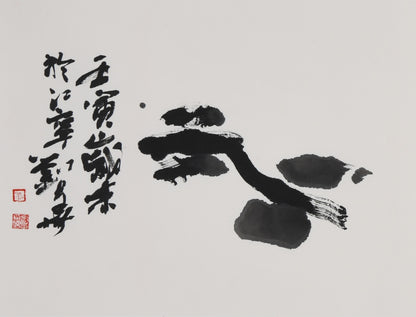 壬寅歲末
於江寧劉